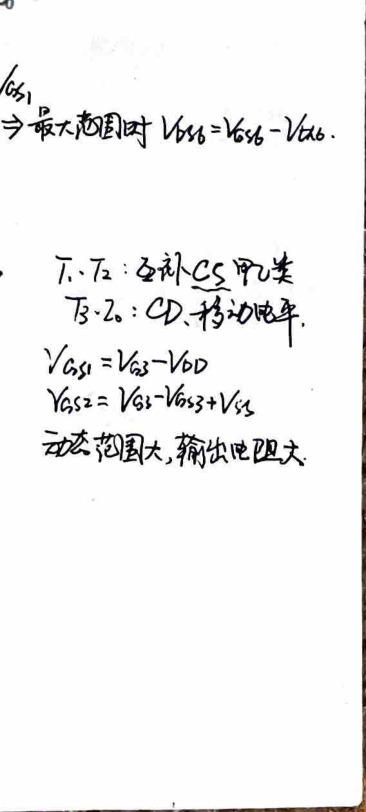 VGS1
⇒ 最大范围时 VDS6=VGS6-Vth6.
T1、T2：互补CS 甲乙类
T3、I0：CD、移动电平.
VGS1=VG3-VDD
VGS2=VG3-VGS3+VSS
动态范围大,输出电阻大.